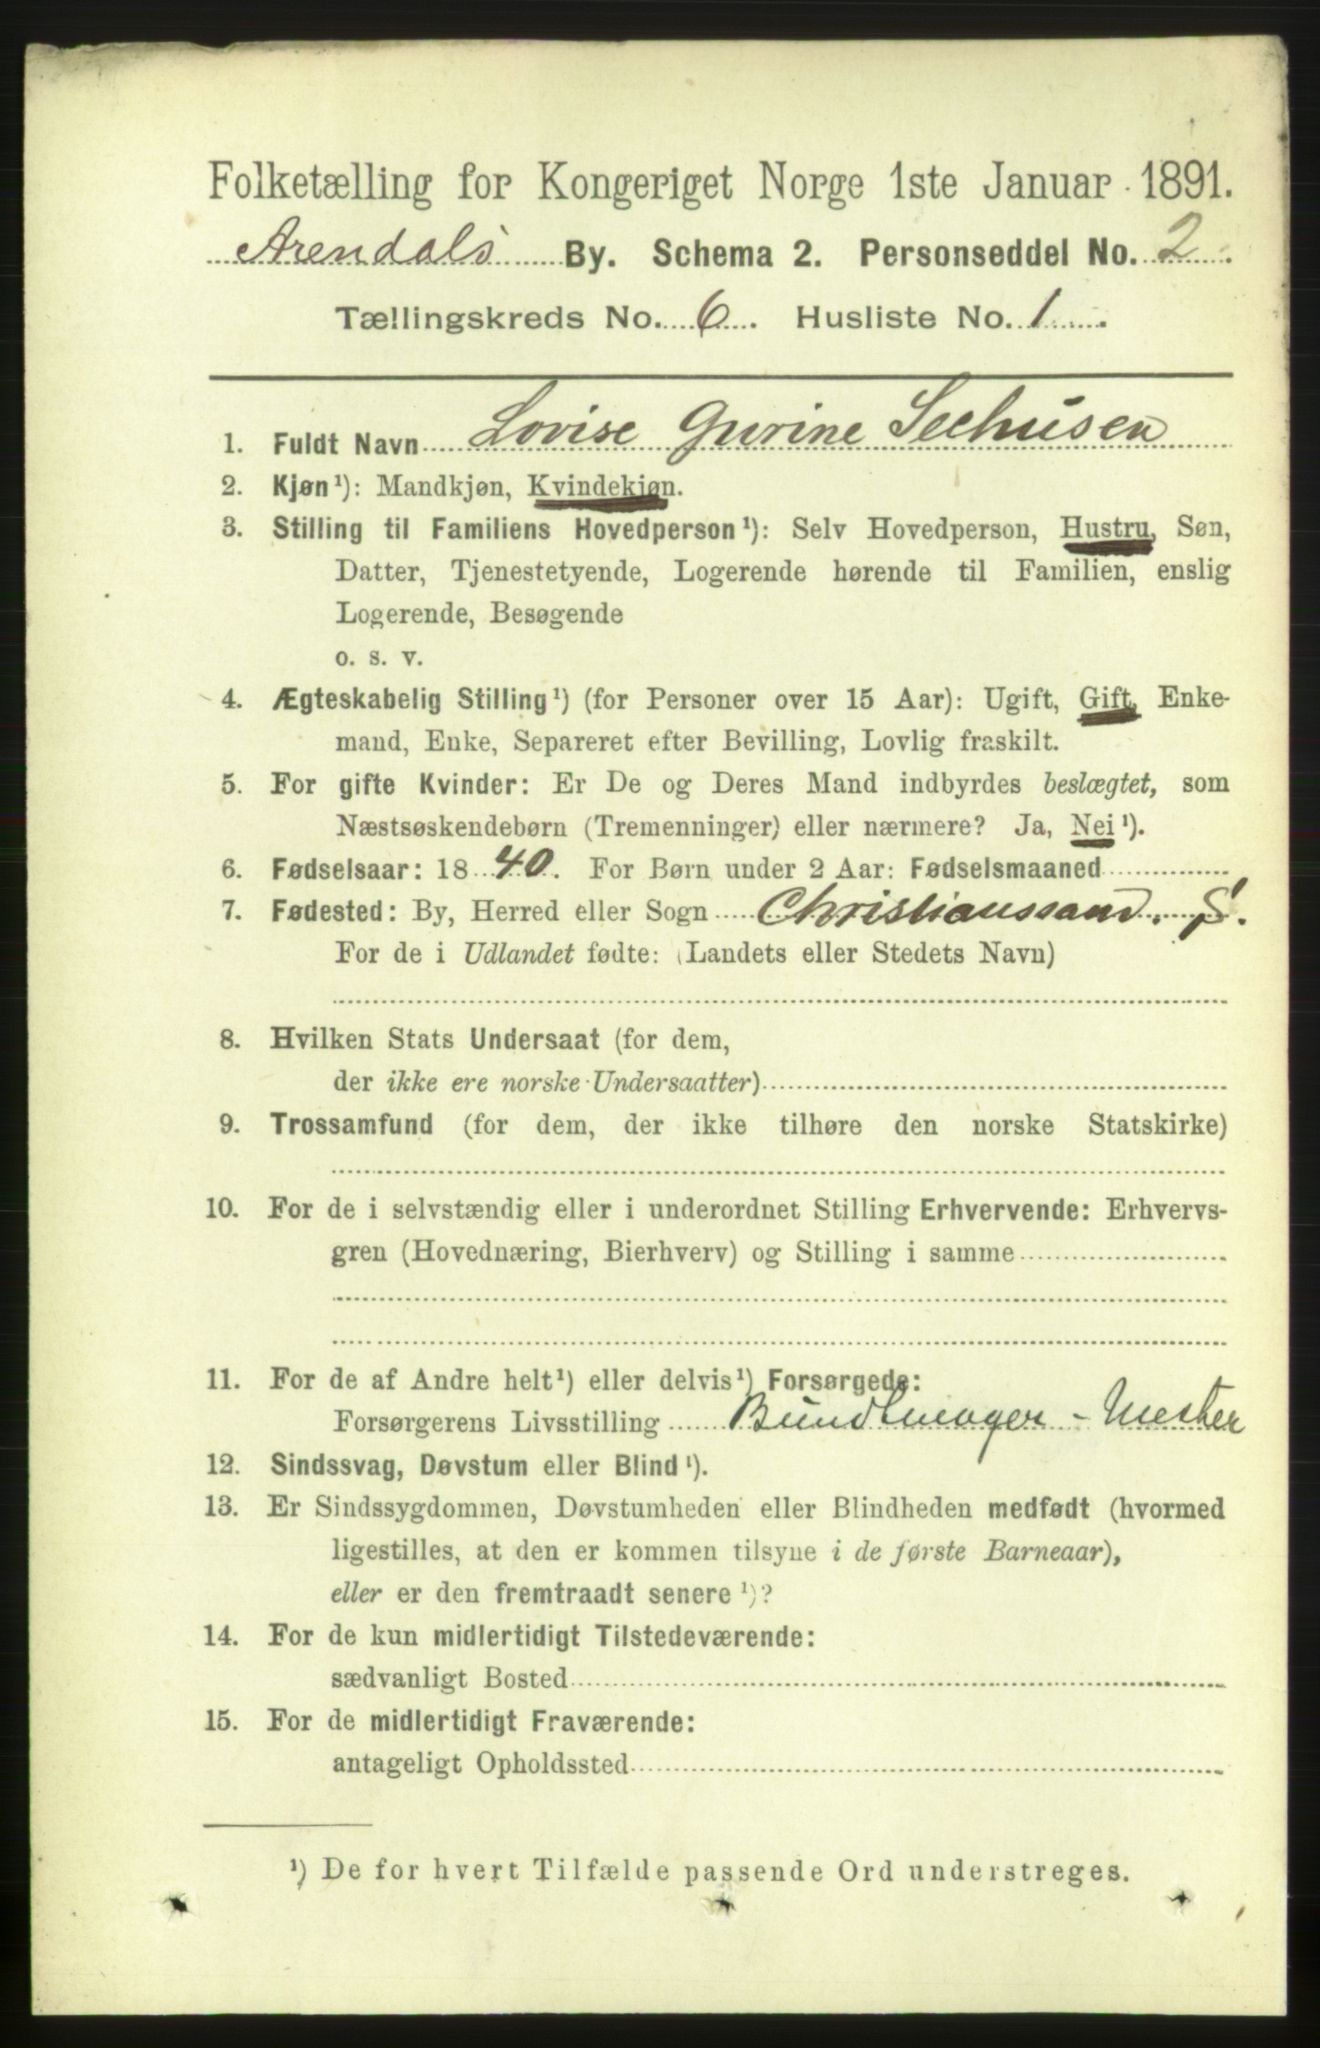 Folketælling for Kongeriget Norge 1ste Januar 1891.
Arendals By. Schema 2. Personseddel No. 2.
Tællingskreds No. 6. Husliste No. 1.
1. Fuldt Navn Lovise Gurine Seehusen
2. Kjøn¹): Mandkjøn, Kvindekjøn.
3. Stilling til Familiens Hovedperson¹): Selv Hovedperson, Hustru, Søn,
Datter, Tjenestetyende, Logerende hørende til Familien, enslig
Logerende, Besøgende
o. s. v.
4. Ægteskabelig Stilling¹) (for Personer over 15 Aar): Ugift, Gift, Enke-
mand, Enke, Separeret efter Bevilling, Lovlig fraskilt.
5. For gifte Kvinder: Er De og Deres Mand indbyrdes beslægtet, som
Næstsøskendebørn (Tremenninger) eller nærmere? Ja, Nei¹).
6. Fødselsaar: 1840. For Børn under 2 Aar: Fødselsmaaned
7. Fødested: By, Herred eller Sogn Christianssand. S.
For de i Udlandet fødte: (Landets eller Stedets Navn)
8. Hvilken Stats Undersaat (for dem,
der ikke ere norske Undersaatter)
9. Trossamfund (for dem, der ikke tilhøre den norske Statskirke)
10. For de i selvstændig eller i underordnet Stilling Erhvervende: Erhvervs-
gren (Hovednæring, Bierhverv) og Stilling i samme
11. For de af Andre helt¹) eller delvis¹) Forsørgede:
Forsørgerens Livsstilling Bundtmager-Mester
12. Sindssvag, Døvstum eller Blind¹).
13. Er Sindssygdommen, Døvstumheden eller Blindheden medfødt (hvormed
ligestilles, at den er kommen tilsyne i de første Barneaar),
eller er den fremtraadt senere¹)?
14. For de kun midlertidigt Tilstedeværende:
sædvanligt Bosted
15. For de midlertidigt Fraværende:
antageligt Opholdssted
¹) De for hvert Tilfælde passende Ord understreges.